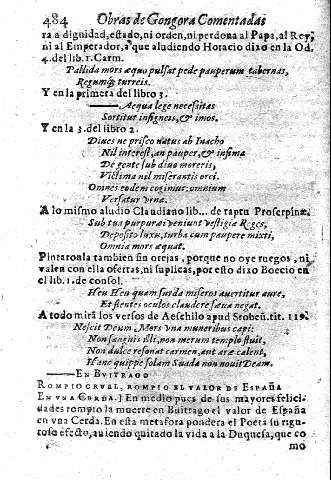 484 Obras de Gongora Comentadas
ra a dignidad, estado, ni orden, ni perdona al Papa, al Rey,
ni al Emperador, a que aludiendo Horacio dixo en la Od.
4. del lib. 1. Carm.
Pallida mors æquo pulsat pede pauperum tabernas,
Regumq́; turreis.
Y en la primera del libro 3.
Aequa lege necessitas
Sortitur insigneis, & imos.
Y en la 3. del libro 2.
Diues ne prisco natus ab Inacho
Nil interest, an pauper, & infima
De gente sub diuo moreris,
Victima nil miserantis orci.
Omnes eodem cogimur: omnium
Versatur vrna.
A lo mismo aludiò Claudiano lib... de raptu Proserpinæ.
Sub tua purpurei veniunt vestigia Reges,
Deposito luxu, turba cum paupere mixti,
Omnia mors æquat.
Pintaronla tambien sin orejas, porque no oye ruegos, ni
valen con ella ofertas, ni suplicas, por esto dixo Boecio en
el lib. 1. de consol.
Heu Heu quam surda miseros auertitur aure,
Et flentes oculos claudere sæua negat.
A todo mirà los versos de Aeschilo apud Stobeũ. tit. 119.
Nescit Deum Mors vna muneribus capi:
Non sanguis illi, non merum templo fluit,
Non dulce resonat carmen, aut aræ calent,
Hanc quippe solam Suada non nouit Deam.
—EN BVITRAGO
ROMPIO CRVEL, ROMPIO EL VALOR DE ESPAÑA
EN VNA CERDA.] En medio pues de sus mayores felici-
dades rompio la muerte en Buitrago el valor de España
en vna Cerda. En esta metafora pondera el Poeta su rigu-
roso efecto, auiendo quitado la vida a la Duquesa, que co
mo